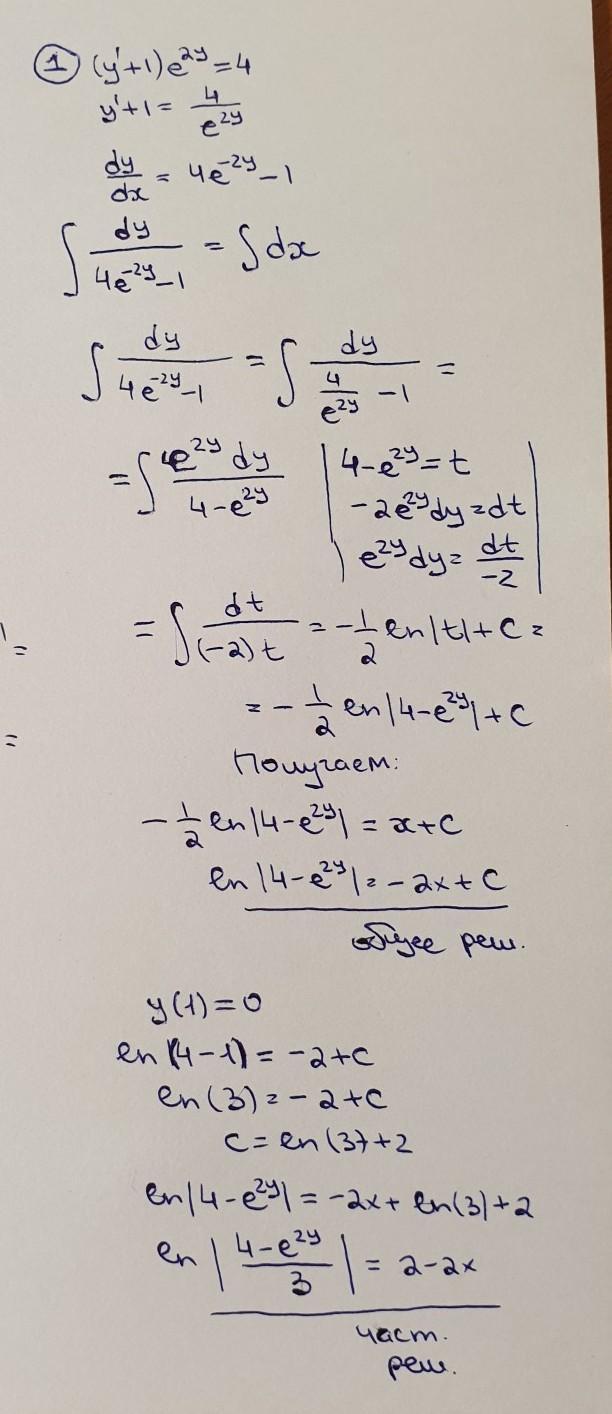 ① (y'+1)e^{2y}=4
y'+1= 4/e^{2y}
dy/dx = 4e^{-2y}-1
∫ dy/(4e^{-2y}-1) = ∫dx
∫ dy/(4e^{-2y}-1) = ∫ dy/(4/e^{2y} -1) =
= ∫ e^{2y} dy/(4-e^{2y}) | 4-e^{2y}=t
-2e^{2y}dy=dt
e^{2y}dy= dt/-2 |
= ∫ dt/((-2)t) = -1/2 ln|t|+C =
= -1/2 ln|4-e^{2y}|+C
Получаем:
-1/2 ln|4-e^{2y}| = x+C
ln|4-e^{2y}|= -2x+C
общее реш.
y(1)=0
ln(4-1)= -2+C
ln(3)= -2+C
C= ln(3)+2
ln|4-e^{2y}|= -2x+ ln(3)+2
ln |(4-e^{2y})/3| = 2-2x
част.
реш.
=
=